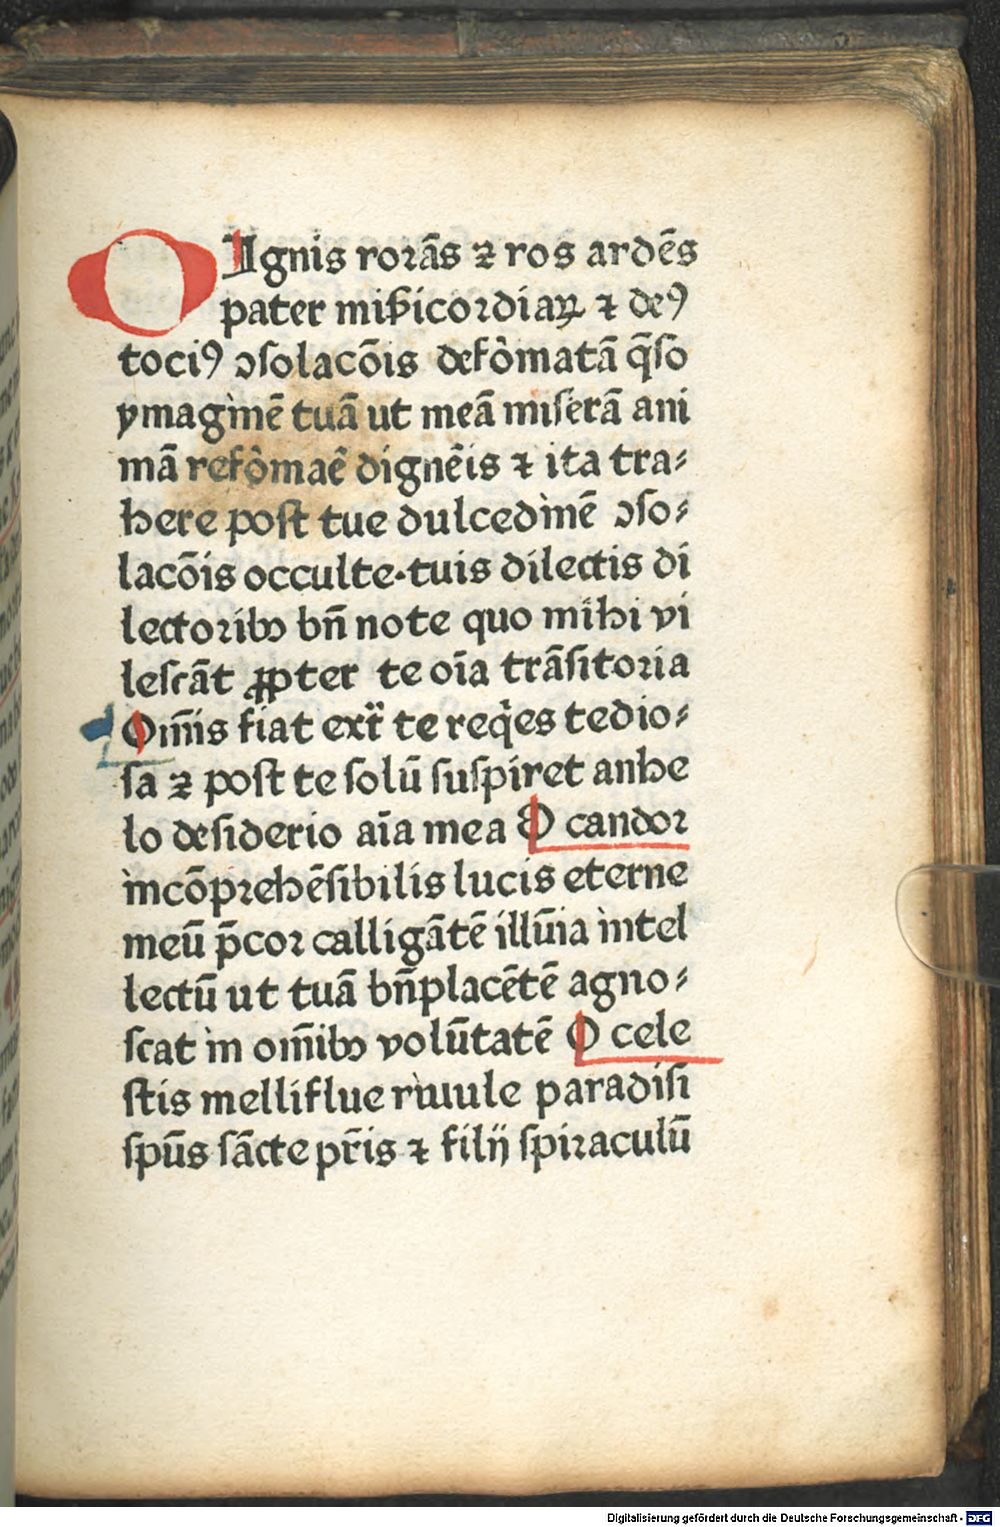 O Ignis roꝛãs ⁊ ros ardẽs
pater miẜicoꝛdiaꝝ ⁊ deꝰ
tociꝰ ꝯſolacõis defoͫmatã q̃ſo
ymaginẽ tuã ut meã miſerã ani
mã refoͫmaẽ dignẽis ⁊ ita tra⸗
here poſt tue dulcedinẽ ꝯſo⸗
lacõis occulte·tuis dilectis di
lectoꝛibꝫ bñ note quo mihi vi
leſcãt ꝓpter te oĩa trãſitoꝛia
Om̃is fiat ext̃ te req̃es tedio⸗
ſa ⁊ poſt te ſolũ ſuſpiret anhe
lo deſiderio aĩa mea O candoꝛ
incõpꝛehẽſibilis lucis eterne
meũ p̃coꝛ calligãtẽ illũia intel
lectũ ut tuã bñplacẽtẽ agno⸗
ſcat in om̃ibꝫ volũtatẽ O cele
ſtis melliflue riuule paradiſi
ſpũs ſãcte pr̃is ⁊ filij ſpiraculũ
Digitalisierung gefördert durch die Deutsche Forschungsgemeinschaft - DFG